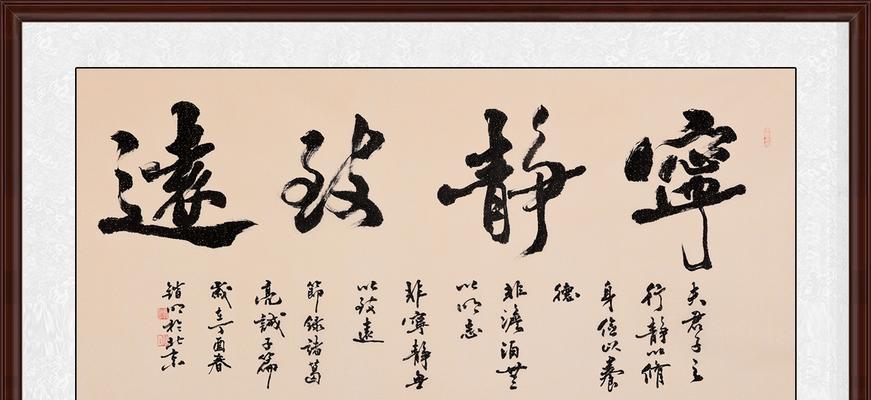 寧靜致遠
夫君子之
行靜以脩
身儉以養
德
非澹泊無
以明志
非寧靜無
以致遠
節録諸葛
亮誡子篇
歲在丁酉春
明於北京